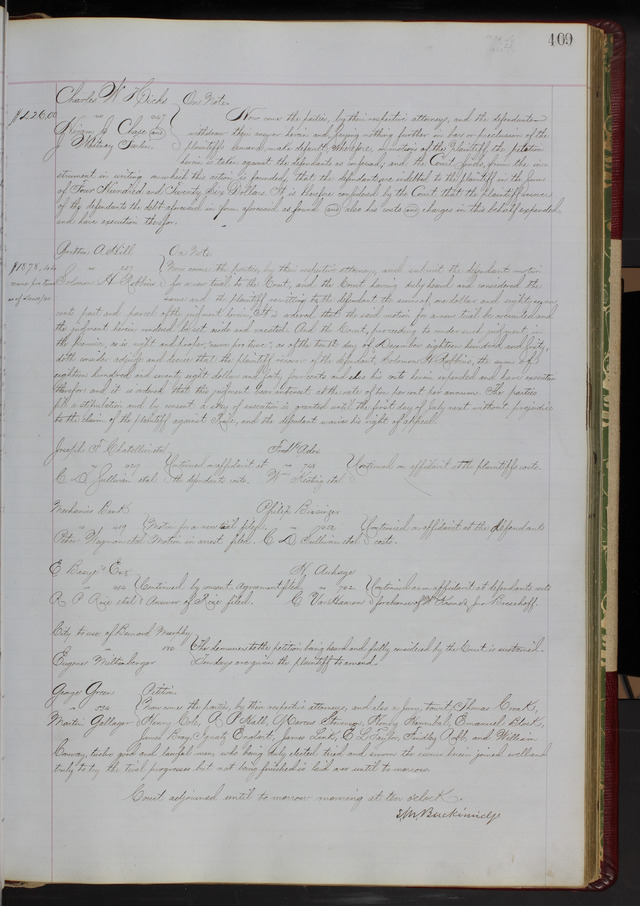 409
Charles W Hicks } On Note
$426,00 " 247 Now come the parties, by their respective attorneys, and the defendants
Hiram L Chase and withdraw their answer herein and saying nothing further in bar or preclusion of the
Whitney plaintiffs demand make default, Wherefore, on motion of the Plaintiff the petition
herein is taken against the defendants as confessed; and the Court finds, from the in-
strument in writing on which this action is founded, that the defendants are indebted to the plaintiff in the sum
of Four Hundred and Twenty Six Dollars. It is therefore considered by the Court that the plaintiff recover
of the defendants the debt aforesaid in form aforesaid as found and also his costs and charges in this behalf expended
and have execution therefor.
A Hill On Note
$1878, Now come the parties, by their respective attorneys, and submit the defendants motion
Solomon H Robbins for a new trial to the Court, and the Court having duly heard and considered the
same and the plaintiff remitting to the defendant the sum of dollars and
cents part and parcel of the judgment herein, It is ordered that the said motion for a new trial be overruled and
the judgment herein rendered be set aside and vacated. And the Court, proceeding to render such judgment in
the premises, as is right and proper, "nunc pro tunc", as of the tenth day of December eighteen hundred and sixty,
doth consider adjudge and decree that the plaintiff recover of the defendant, Solomon H Robbins, the sum of
eighteen hundred and seventy eight dollars and forty four cents and also his costs herein expended and have execution
therefor and it is ordered that this judgment bear interest at the rate of ten per cent per annum. The parties
file a stipulation and by consent a stay of execution is granted until the first day of July next without prejudice
to the claim of the plaintiff against Rose, and the defendant waives his right of appeal.
Joseph F Chatillon etal Fredk Ades
" 929 Continued on affidavit at " 748 Continued on affidavit at the plaintiffs costs.
C D Sullivan etal the defendants costs. Wm Keating etal
Mechanics Bank Philip
" 419 Motion for a new trial filed. " Continued on affidavit at the defendants
Peter Wagman etal Motion in arrest filed. C D Sullivan etal costs.
E Exr W
" Continued by consent Agreement filed. " 702 Continued on affidavit at defendants costs
R P Rize etal Answer of Rize filed. C
City to use of Bernard Murphy
" 180 The demurrer to the petition being heard and fully considered by the Court is sustained.
Eugene Miltenberger Ten days are given the plaintiff to amend.
George Green Petition
" 524 Now come the parties, by their respective attorneys, and also a jury, towit; Thomas
Martin Gallager Henry Cole, A P Hall, Marcus Henry Emanuel Block,
James Bray, Ignatz James Lusk, E L Taylor, Findley Robb, and William
Conway, twelve good and lawful men, who being duly elected tried and sworn the issues herein joined well and
truly to try the trial progresses but not being finished is laid over until to morrow.
Court adjourned until to morrow morning at ten oclock.
S M Breckinridge